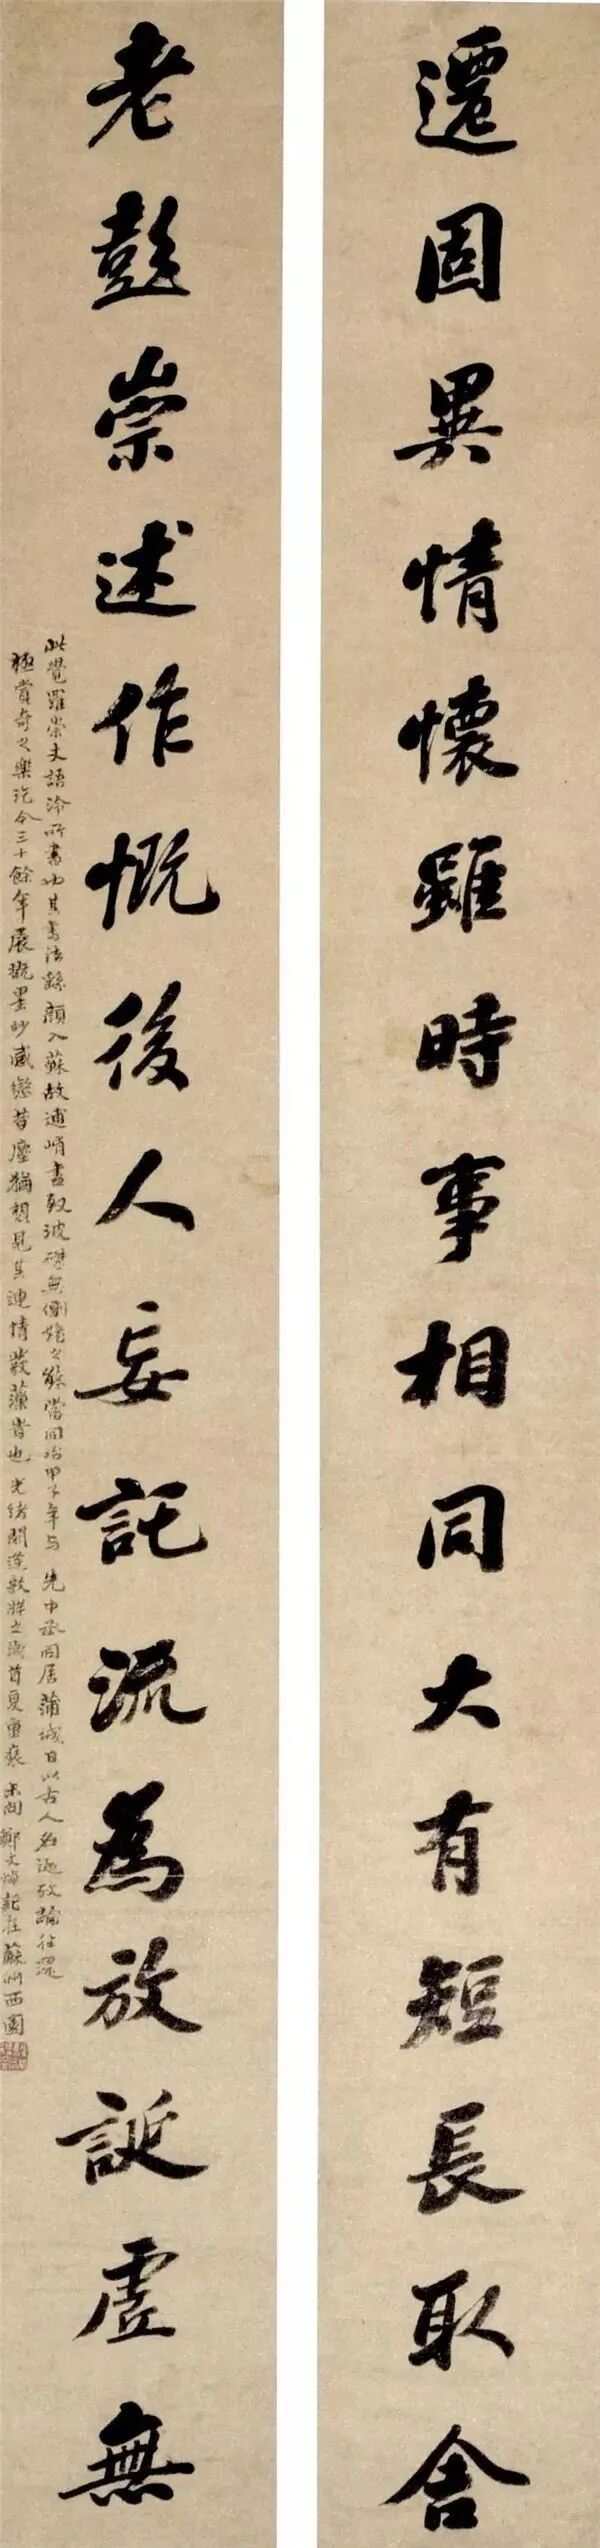 遷固異情懷雖時事相同大有短長取舍
老彭崇述作慨後人妄託流為放誕虛無
此覺羅崇夫語泠所書也其書法繇顏入蘇故逋峭盡致波磔無側媚之態當同治甲子年与先中丞同居蒲城日以古人名迹攷論往還
極賞奇之樂迄今三十餘年展玩墨妙感戀昔塵猶想見其連情發藻岩也光緒閼逢敦牂之歲首夏重裝未問鄭文焯記在蘇州西園